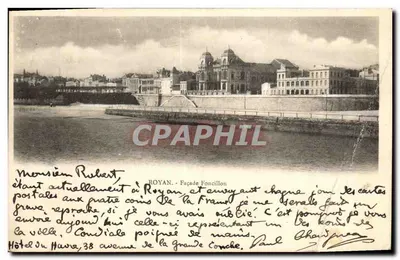 CPAPHIL.com
ROYAN. - Façade Foncillon
Monsieur Rubert,
étant actuellement à Royan et envoyant chaque jour des cartes
postales aux quatre coins de la France je me serais fait un
grave reproche, si je vous avais oublié. C'est pourquoi je vous
envoie aujourd'hui celle-ci représentant un des coins de
la ville. Cordiale poignée de mains.
Hôtel du Havre, 38 avenue de la Grande Conche, Paul